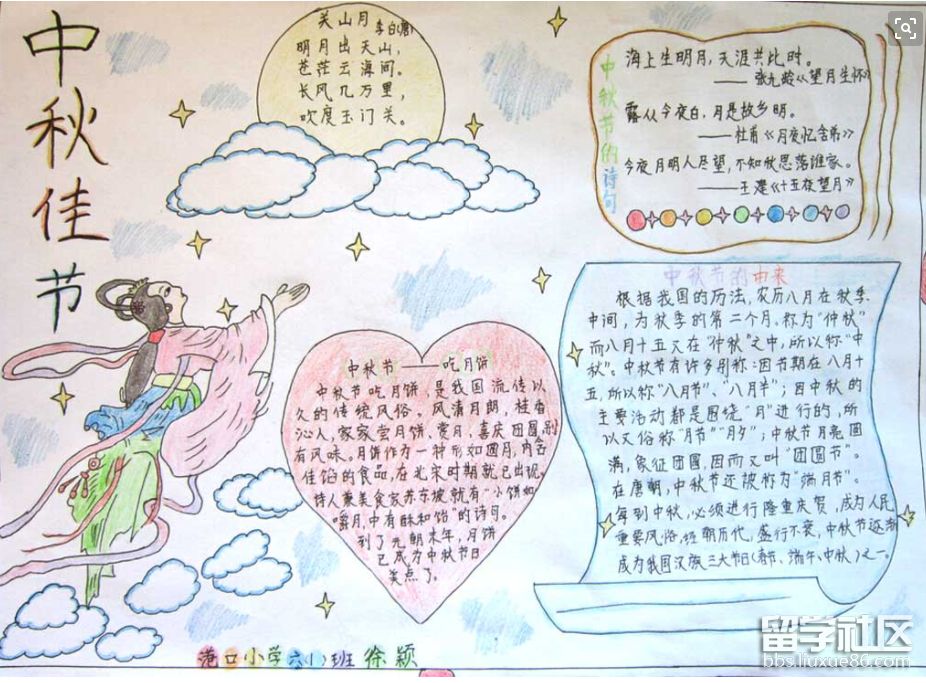 中秋佳节
关山月
李白(唐)
明月出天山，
苍茫云海间。
长风几万里，
吹度玉门关。
中秋节的诗句
海上生明月，天涯共此时。
——张九龄《望月生怀》
露从今夜白，月是故乡明。
——杜甫《月夜忆舍弟》
今夜月明人尽望，不知秋思落谁家。
——王建《十五夜望月》
中秋节的由来
根据我国的历法，农历八月在秋季
中间，为秋季的第二个月，称为“仲秋”
而八月十五又在“仲秋”之中，所以称“中
秋”。中秋节有许多别称：因节期在八月十
五，所以称“八月节”、“八月半”；因中秋的
主要活动都是围绕“月”进行的，所
以又俗称“月节”“月夕”；中秋节月亮圆
满，象征团圆，因而又叫“团圆节”。
在唐朝，中秋节还被称为“端月节”。
每到中秋，必须进行隆重庆贺，成为人民
重要风俗，经朝历代，盛行不衰，中秋节逐渐
成为我国汉族三大节日(春节、端午、中秋)之一。
中秋节——吃月饼
中秋节吃月饼，是我国流传以
久的传统风俗。风清月朗，桂香
沁人，家家尝月饼、赏月，喜庆团圆，别
有风味。月饼作为一种形如圆月，内含
佳馅的食品，在北宋时期就已出现。
诗人兼美食家苏东坡就有“小饼如
嚼月，中有酥和饴”的诗句。
到了元朝末年，月饼
已成为中秋节日
美点了。
港口小学六(1)班 徐颖
留学社区
bbs.liuxue86.com